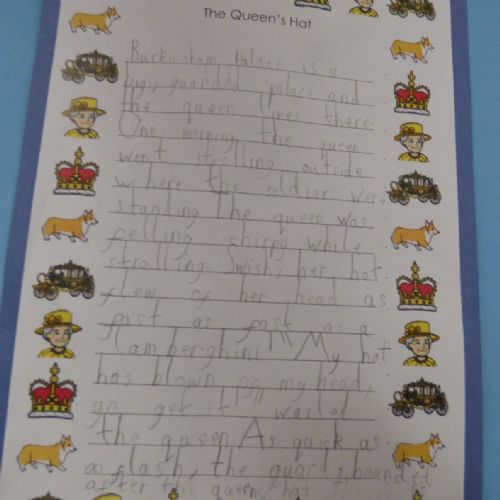 The Queen's Hat
Buckingham Palace is a
big, guarded palace and
the queen lives there.
One morning the queen
went strolling outside
where the soldiars were
standing The queen was
felling chirpy while
strolling. Swish, her hat
flew of her head as
fast as fast as a
lamberghini!" "My hat
has blown off my head,
go get it" wailed
the queen. As quick as
a flash, the guards bounded
after the queens hat